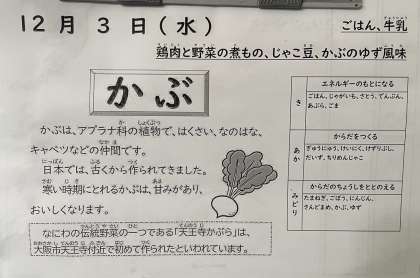 12月 3日(水)
ごはん、牛乳
鶏肉と野菜の煮もの、じゃこ豆、かぶのゆず風味
かぶ
かぶは、アブラナ科の植物で、はくさい、なのはな、
キャベツなどの仲間です。
日本では、古くから作られてきました。
寒い時期にとれるかぶは、甘みがあり、
おいしくなります。
なにわの伝統野菜の一つである「天王寺かぶら」は、
大阪市天王寺付近で初めて作られたといわれています。
き
エネルギーのもとになる
ごはん、じゃがいも、さとう、でんぷん、
あぶら、ごま
あか
からだをつくる
ぎゅうにゅう、けいにく、けずりぶし、
だいず、ちりめんじゃこ
みどり
からだのちょうしをととのえる
たまねぎ、ごぼう、にんじん、
さんどまめ、かぶ、ゆず